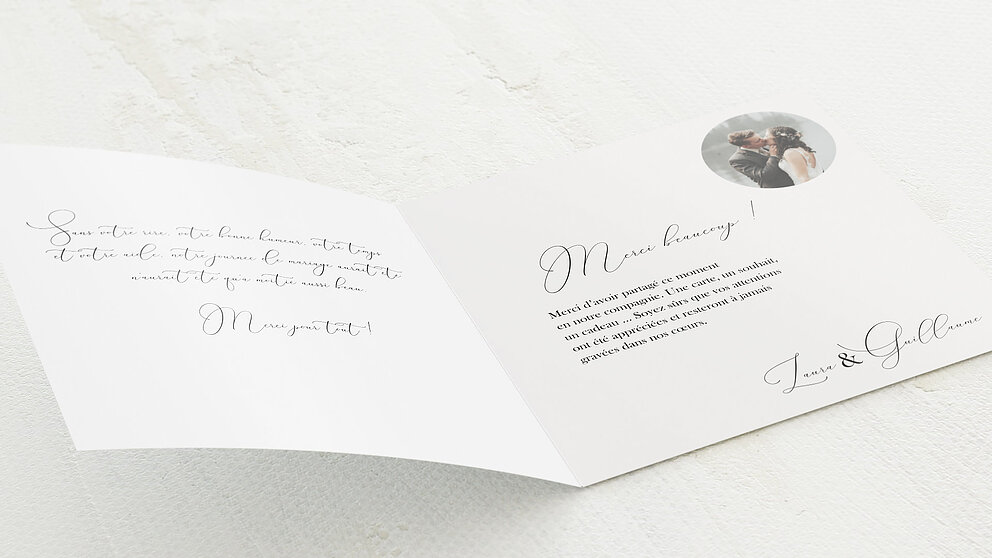 Sans votre rire, votre bonne humeur, votre temps
et votre aide, notre journée de mariage aurait été
n'aurait été qu'à moitié aussi beau.
Merci pour tout !
Merci beaucoup !
Merci d'avoir partagé ce moment
en notre compagnie. Une carte, un souhait,
un cadeau ... Soyez sûrs que vos attentions
ont été appréciées et resteront à jamais
gravées dans nos cœurs.
Laura & Guillaume